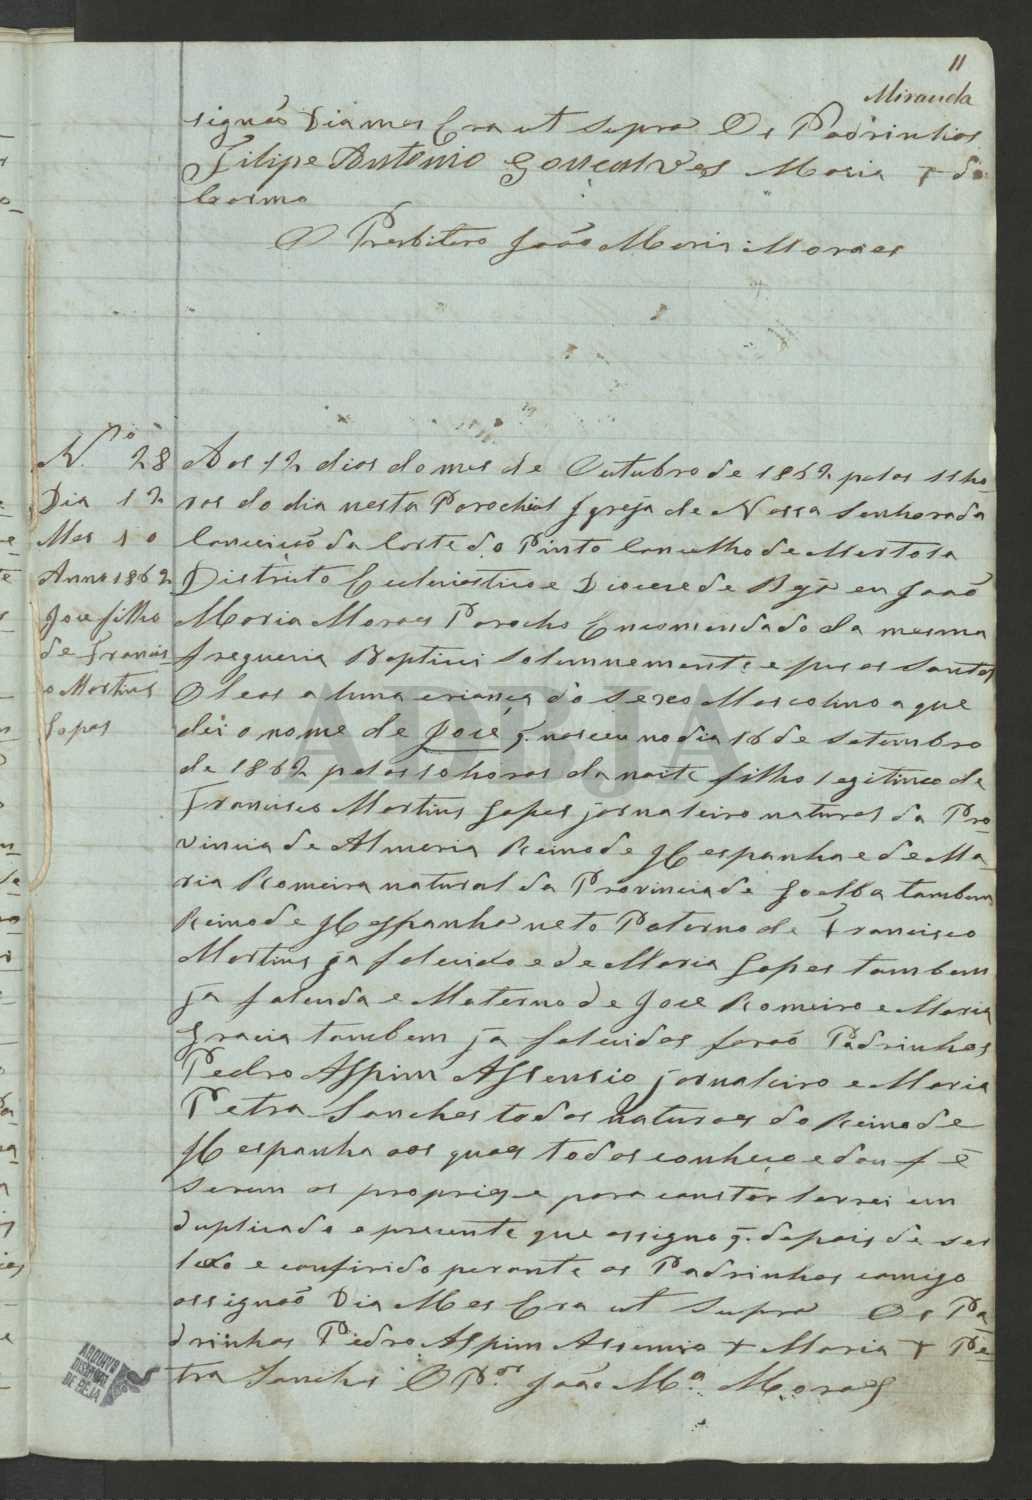 11
Miranda
signaõ Dia mes Era ut supra Os Padrinhos
Filipe Antonio Goncalves Maria + do
Carmo
O Presbitero João Maria Moraes
N.º 28
Dia 12
Mes 10
Anno 1862
Jose filho
de Francis-
co Martins
Lopes
Aos 12 dias do mes de Outubro de 1862 pelas 11 ho-
ras do dia nesta Parochial Igreja de Nossa Senhora da
Conceicaõ da Corte do Pinto Concelho de Mertola
Districto Eccleziastico e Diocese de Beja eu Joaõ
Maria Moraes Parocho Encomendado da mesma
freguezia Baptizei Solemnemente e pus os Santos
Oleos a huma criança do Sexo Mascolino a que
dei o nome de José q. nasceu no dia 16 de Setembro
de 1862 pelas 10 horas da noite filho legitimo de
Francisco Martins Lopes jornaleiro natural da Pro-
vincia de Almeria Reino de Hespanha e de Ma-
ria Romeira natural da Provincia de Goelba tambem
Reino de Hespanha neto Paterno de Francisco
Martins ja falecido e de Maria Lopes tambem
ja falecida e Materno de Jose Romeiro e Maria
Gracia tambem ja falecidos foraõ Padrinhos
Pedro Aspim Assensio jornaleiro e Maria
Petra Sanches todos naturaes do Reino de
Hespanha aos quaes todos conheço e dou fé
serem os proprios e para constar lavrei em
duplicado o presente que assigno q. depois de ser
lido e confirido perante os Padrinhos comigo
assignaõ Dia Mes Era ut supra Os Pa-
drinhos Pedro Aspim Assensio + Maria + Pe-
tra Sanches O P.or João M.a Moraes
ADBJA
ARQUIVO
DISTRITAL
DE BEJA